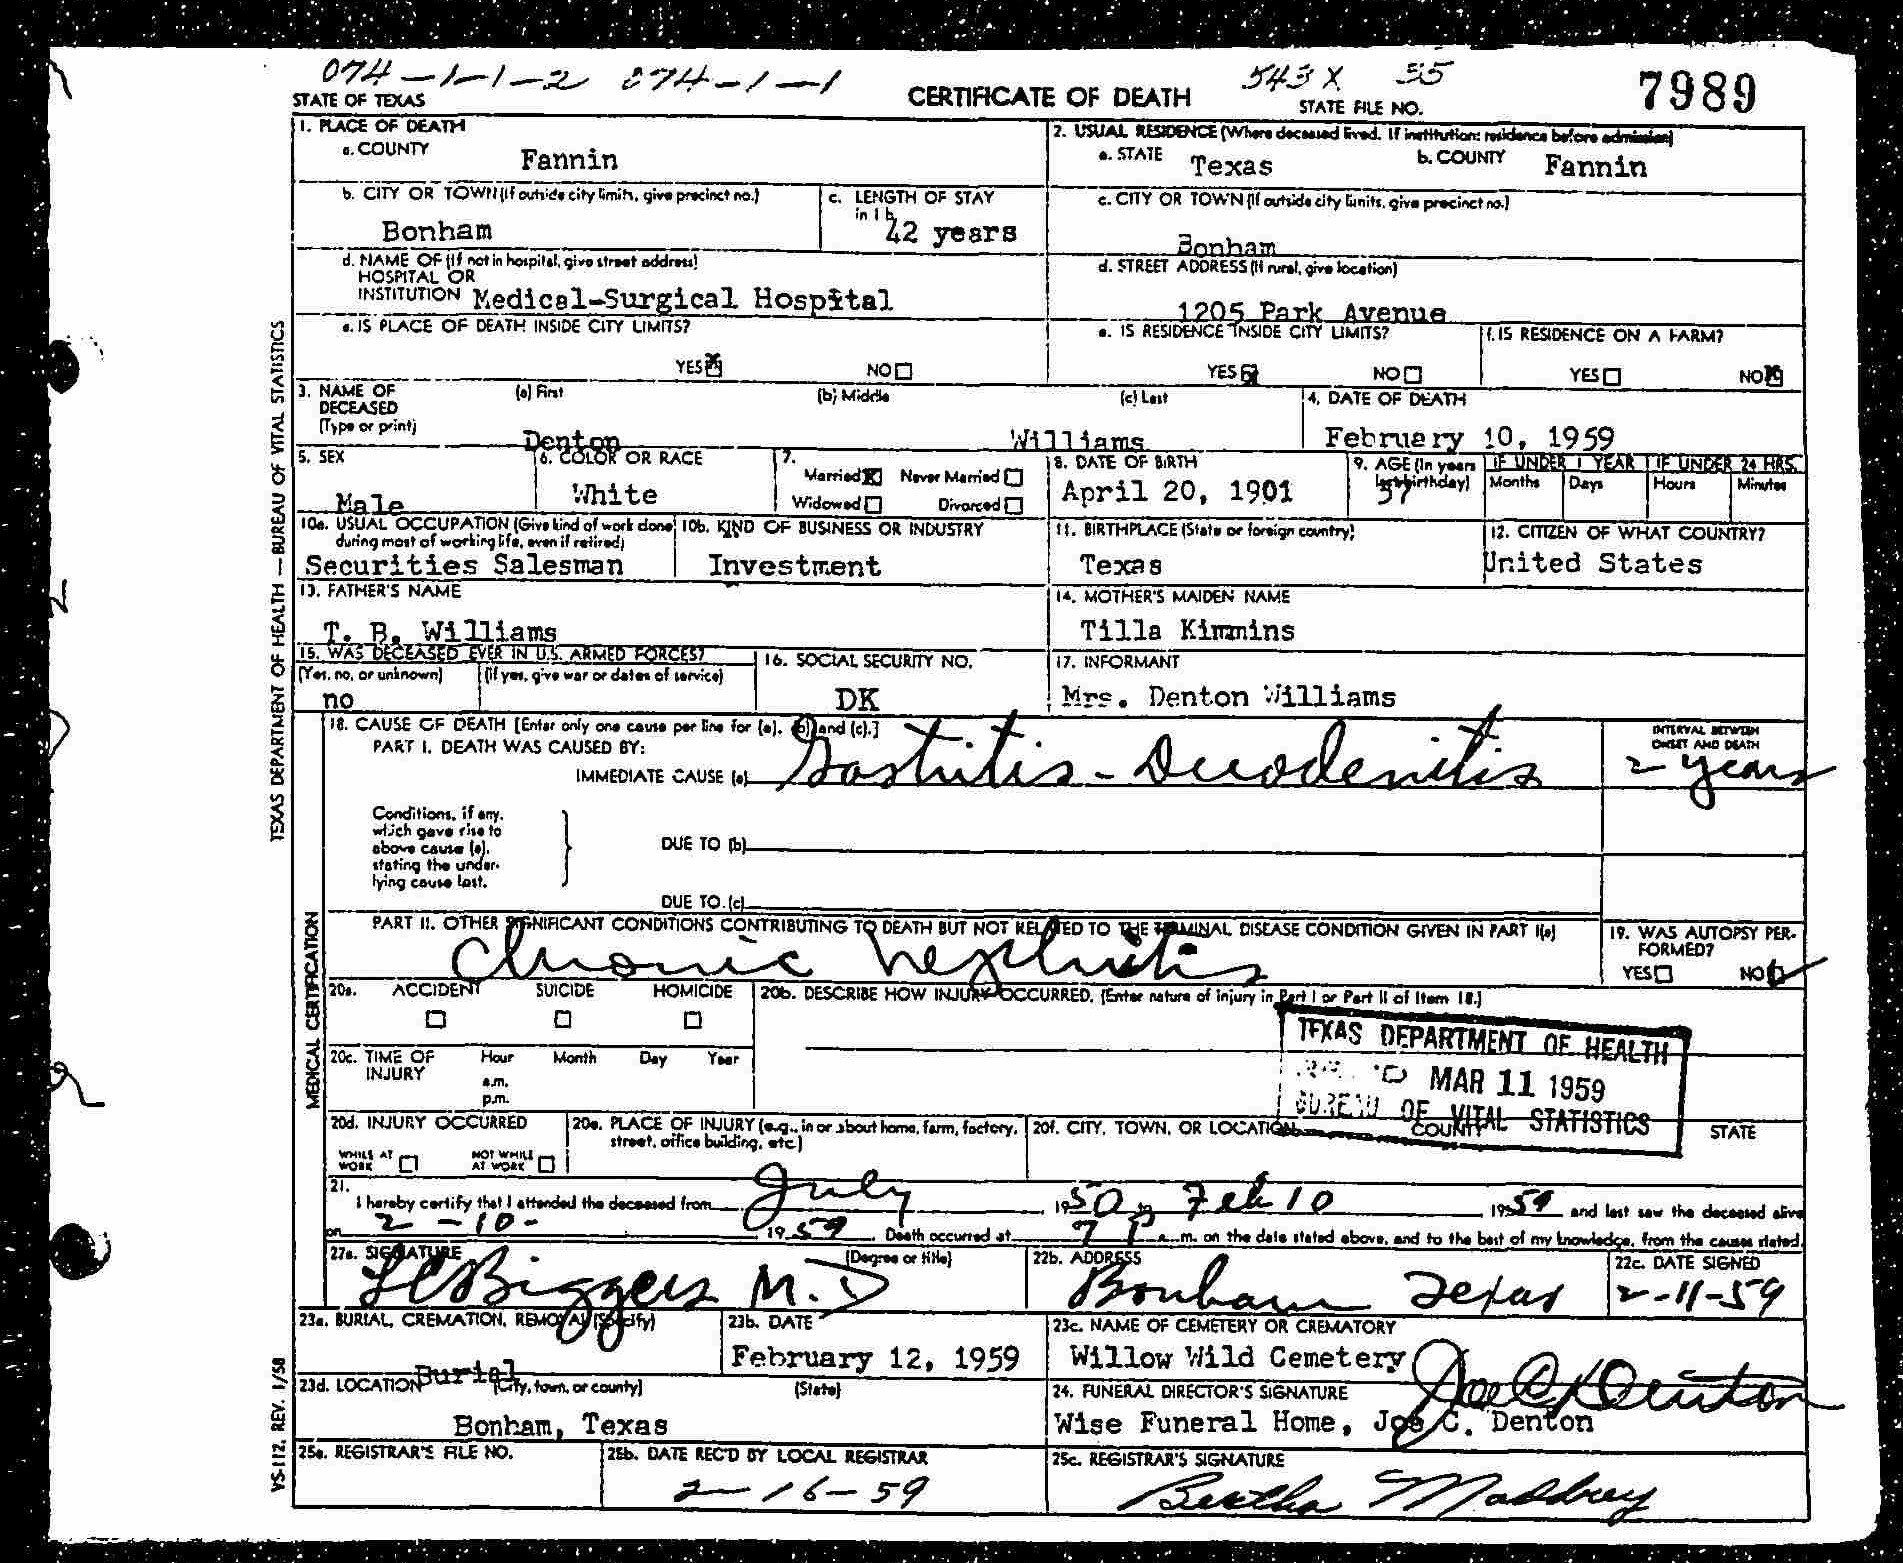 074-1-1-2 074-1-1 543X 35 7989
STATE OF TEXAS CERTIFICATE OF DEATH STATE FILE NO.
1. PLACE OF DEATH
a. COUNTY Fannin
2. USUAL RESIDENCE (Where deceased lived. If institution: residence before admission)
a. STATE Texas b. COUNTY Fannin
b. CITY OR TOWN (If outside city limits, give precinct no.) Bonham
c. LENGTH OF STAY in 1 b. 42 years
c. CITY OR TOWN (If outside city limits, give precinct no.)
Bonham
d. NAME OF (If not in hospital, give street address)
HOSPITAL OR
INSTITUTION Medical-Surgical Hospital
d. STREET ADDRESS (If rural, give location)
1205 Park Avenue
e. IS PLACE OF DEATH INSIDE CITY LIMITS?
YES NO
e. IS RESIDENCE INSIDE CITY LIMITS?
YES NO
f. IS RESIDENCE ON A FARM?
YES NO
3. NAME OF DECEASED (Type or print)
(a) First (b) Middle (c) Last
Denton Williams
4. DATE OF DEATH
February 10, 1959
5. SEX
Male
6. COLOR OR RACE
White
7. Married Never Married
Widowed Divorced
8. DATE OF BIRTH
April 20, 1901
9. AGE (In years last birthday)
57
IF UNDER 1 YEAR IF UNDER 24 HRS.
Months Days Hours Minutes
10a. USUAL OCCUPATION (Give kind of work done during most of working life, even if retired)
Securities Salesman
10b. KIND OF BUSINESS OR INDUSTRY
Investment
11. BIRTHPLACE (State or foreign country)
Texas
12. CITIZEN OF WHAT COUNTRY?
United States
13. FATHER'S NAME
T. B. Williams
14. MOTHER'S MAIDEN NAME
Tilla Kimmins
15. WAS DECEASED EVER IN U.S. ARMED FORCES?
(Yes, no, or unknown) (If yes, give war or dates of service)
no
16. SOCIAL SECURITY NO.
DK
17. INFORMANT
Mrs. Denton Williams
18. CAUSE OF DEATH [Enter only one cause per line for (a), (b) and (c).]
PART I. DEATH WAS CAUSED BY:
IMMEDIATE CAUSE (a) Gastritis - Duodenitis
INTERVAL BETWEEN ONSET AND DEATH
2 years
Conditions, if any, which gave rise to above cause (a), stating the underlying cause last.
DUE TO (b)
DUE TO (c)
PART II. OTHER SIGNIFICANT CONDITIONS CONTRIBUTING TO DEATH BUT NOT RELATED TO THE TERMINAL DISEASE CONDITION GIVEN IN PART I(a)
Chronic Nephritis
19. WAS AUTOPSY PERFORMED?
YES NO
20a. ACCIDENT SUICIDE HOMICIDE
20b. DESCRIBE HOW INJURY OCCURRED. (Enter nature of injury in Part I or Part II of Item 18.)
20c. TIME OF INJURY Hour Month Day Year
a.m.
p.m.
TEXAS DEPARTMENT OF HEALTH
MAR 11 1959
BUREAU OF VITAL STATISTICS
20d. INJURY OCCURRED
WHILE AT WORK NOT WHILE AT WORK
20e. PLACE OF INJURY (e.g., in or about home, farm, factory, street, office building, etc.)
20f. CITY, TOWN, OR LOCATION COUNTY STATE
21. I hereby certify that I attended the deceased from July 1950, Feb 10 1959 and last saw the deceased alive
on 2-10- 1959. Death occurred at 7 P m. on the date stated above, and to the best of my knowledge, from the causes stated.
22a. SIGNATURE (Degree or title)
Biggers M.D
22b. ADDRESS
Bonham Texas
22c. DATE SIGNED
2-11-59
23a. BURIAL, CREMATION, REMOVAL (Specify)
Burial
23b. DATE
February 12, 1959
23c. NAME OF CEMETERY OR CREMATORY
Willow Wild Cemetery
23d. LOCATION (City, town, or county) (State)
Bonham, Texas
24. FUNERAL DIRECTOR'S SIGNATURE
Joe C Denton
Wise Funeral Home, Joe C. Denton
25a. REGISTRAR'S FILE NO.
25b. DATE REC'D BY LOCAL REGISTRAR
2-16-59
25c. REGISTRAR'S SIGNATURE
Bertha Maddrey
TEXAS DEPARTMENT OF HEALTH — BUREAU OF VITAL STATISTICS
MEDICAL CERTIFICATION
VS-112. REV. 1/58